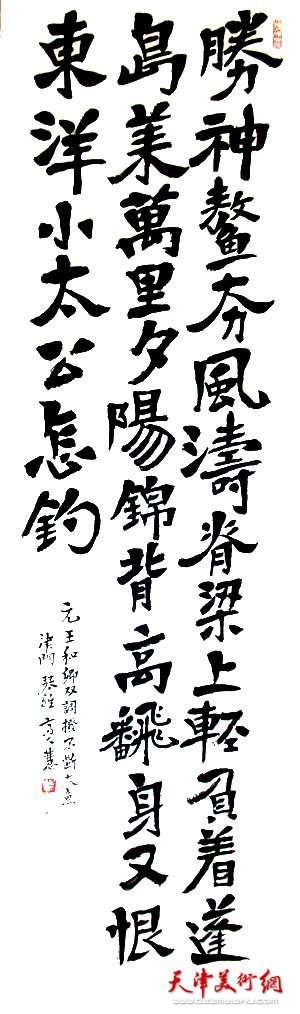 勝神鳌夯風濤脊梁上輕負着蓬
島莱萬里夕陽錦背高飜身又恨
東洋小太公怎釣
元王和卿双調撥不斷大魚
津門 琴
天津美術網